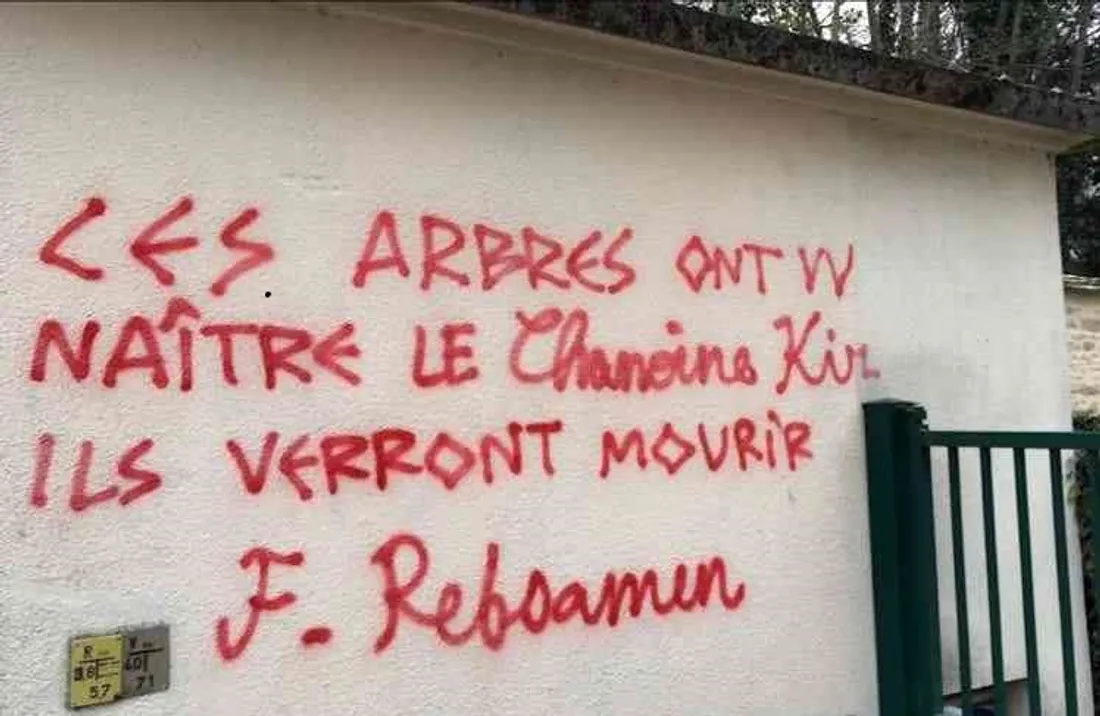 CES ARBRES ONT VV
NAÎTRE LE Chanoine Kir
ILS VERRONT MOURIR
F. Rebsamen
R
57
71